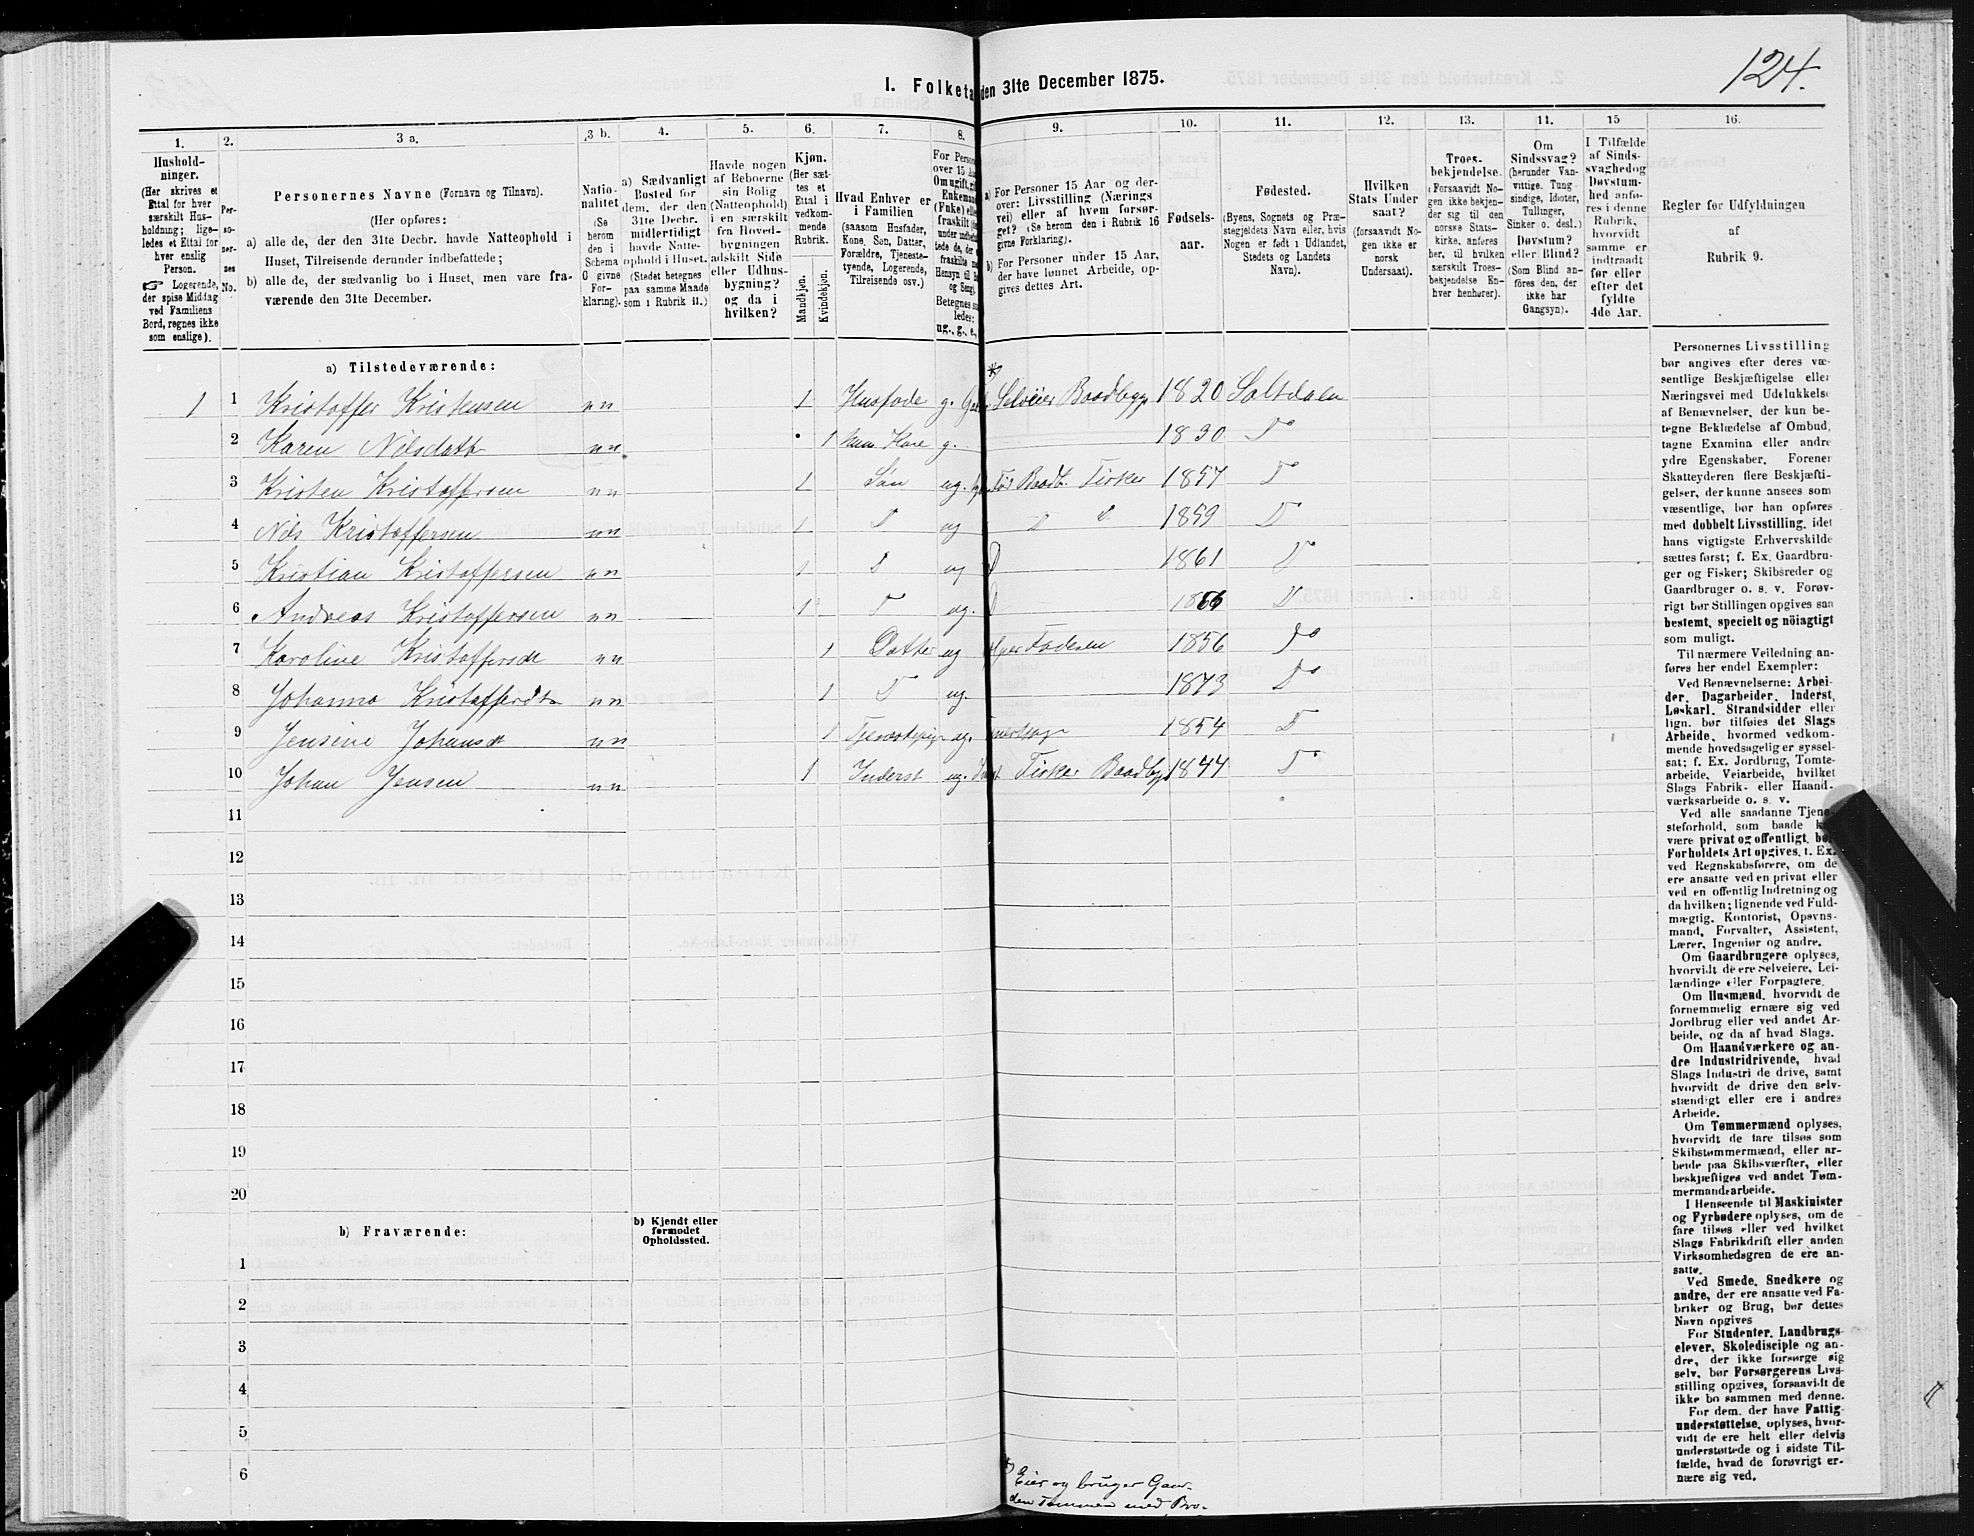 124.
I. Folketa den 31te December 1875.
1. 2. 3 a. 3 b. 4. 5. 6. 7. 8. 9. 10. 11. 12. 13. 14. 15 16.
Hushold-
ninger.
(Her skrives et
Ettal for hver
særskilt Hus-
holdning; lige-
ledes et Ettal for
hver enslig
Person.
☞ Logerende,
der spise Middag
ved Familiens
Bord, regnes ikke
som enslige).
Per-
so-
ner-
nes
No.
Personernes Navne (Fornavn og Tilnavn).
(Her opføres:
a) alle de, der den 31te Decbr. havde Natteophold i
Huset, Tilreisende derunder indbefattede;
b) alle de, der sædvanlig bo i Huset, men vare fra-
værende den 31te December.
Natio-
nalitet
(Se
herom
den i
Schema
O givne
For-
klaring).
a) Sædvanligt
Bosted for
dem, der den
31te Decbr.
midlertidigt
havde Natte-
ophold i Huset.
(Stedet betegnes
paa samme Maade
som i Rubrik 11.)
Havde nogen
af Beboerne
sin Bolig
(Natteophold)
i en særskilt
fra Hoved-
bygningen
adskilt Side
eller Udhus-
bygning?
og da i
hvilken?
Kjøn.
(Her sæt-
tes et
Ettal i
vedkom-
mende
Rubrik.
Mandkjøn.
Kvindekjøn.
Hvad Enhver er
i Familien
(saasom Husfader,
Kone, Søn, Datter,
Forældre, Tjeneste-
tyende, Logerende,
Tilreisende osv.)
For Perso
over 15 Aa
Om ugift, gi
Enkeman
(Enke) elle
fraskilt
Betegnes sa
ledes:
ug., g., e.,
a) For Personer 15 Aar og der-
over: Livsstilling (Nærings
vei) eller af hvem forsør-
get? (Se herom den i Rubrik 16
givne Forklaring).
b) For Personer under 15 Aar,
der have lønnet Arbeide, op-
gives dettes Art.
Fødsels-
aar.
Fødested.
(Byens, Sognets og Præ-
stegjeldets Navn eller, hvis
Nogen er født i Udlandet,
Stedets og Landets
Navn).
Hvilken
Stats Under
saat?
(forsaavidt No-
gen ikke er
norsk
Undersaat).
Troes-
bekjendelse.
(Forsaavidt No-
gen ikke bekjen-
der sig til den
norske Stats-
kirke, anføres
her, til hvilken
særskilt Troes-
bekjendelse En-
hver henhører).
Om
Sindssvag?
(herunder Van-
vittige, Tung-
sindige, Idioter,
Tullinger,
Sinker o. desl.)
Døvstum?
eller Blind?
(Som Blind an-
føres den, der
ikke har
Gangsyn).
I Tilfælde
af Sinds-
svaghed og
Døvstum-
hed anfø-
res i denne
Rubrik,
hvorvidt
samme er
indtraadt
før eller
efter det
fyldte
4de Aar.
Regler for Udfyldningen
af
Rubrik 9.
a) Tilstedeværende:
1 1 Kristoffer Kristensen nn 1 Husfade g. Selveier Baadbygg 1820 Saltdalen
2 Karen Nilsdatt nn 1 hans Kone g. 1830 Do
3 Kristen Kristoffersen nn 1 Søn ug. Baadb. Fisker 1857 Do
4 Nils Kristoffersen nn 1 D ug D D 1859 D
5 Kristian Kristoffersen nn 1 D ug D 1861 D
6 Andreas Kristoffersen nn 1 D ug. D D
7 Karoline Kristoffersdt nn 1 Datter ug Faderen 1856 Do
8 Johanna Kristoffersdt nn 1 D ug. 1873 Do
9 Jensine Johansdt nn 1 Tjenestepige ug. 1854 D
10 Johan Jensen nn 1 Inderst ug. Fisker Baadbyg 1844 D
11
12
13
14
15
16
17
18
19
20
b) Fraværende:
b) Kjendt eller
formodet
Opholdssted.
1
2
3
4
5
6
Personernes Livsstilling
bør angives efter deres væ-
sentlige Beskjæftigelse eller
Næringsvei med Udelukkelse
af Benævnelser, der kun be-
tegne Beklædelse af Ombud,
tagne Examina eller andre
ydre Egenskaber. Forener
Skatteyderen flere Beskjæfti-
gelser, der kunne ansees som
væsentlige, bør han opføres
med dobbelt Livsstilling, idet
hans vigtigste Erhvervskilde
sættes først; f. Ex. Gaardbru-
ger og Fisker; Skibsreder og
Gaardbruger o. s. v. Forøv-
rigt bør Stillingen opgives saa
bestemt, specielt og nöiagtigt
som muligt.
Til nærmere Veiledning an-
føres her endel Exempler:
Ved Benævnelserne: Arbei-
der, Dagarbeider, Inderst,
Løskarl, Strandsidder eller
lign. bør tilføies det Slags
Arbeide, hvormed vedkom-
mende hovedsagelig er syssel-
sat; f. Ex. Jordbrug, Tomte-
arbeide, Veiarbeide, hvilket
Slags Fabrik- eller Haand-
værksarbeide o. s. v.
Ved alle saadanne Tjene-
steforhold, som baade
være privat og offentligt, bør
Forholdets Art opgives, t. Ex.
ved Regnskabsførere, om de
ere ansatte ved en privat eller
ved en offentlig Indretning og
da hvilken; lignende ved Fuld-
mægtig, Kontorist, Opsyns-
mand, Forvalter, Assistent,
Lærer, Ingeniør og andre.
Om Gaardbrugere oplyses,
hvorvidt de ere Selveiere, Lei-
lændinge eller Forpagtere.
Om Husmænd, hvorvidt de
fornemmelig ernære sig ved
Jordbrug eller ved andet Ar-
beide, og da af hvad Slags.
Om Haandværkere og an-
dre Industridrivende, hvad
Slags Industri de drive, samt
hvorvidt de drive den selv-
stændigt eller ere i andres
Arbeide.
Om Tømmermænd oplyses,
hvorvidt de fare tilsøs som
Skibstømmermænd, eller ar-
beide paa Skibsværfter, eller
beskjæftiges ved andet Tøm-
mermandsarbeide.
I Henseende til Maskinister
og Fyrbødere oplyses, om de
fare tilsøs eller ved hvilket
Slags Fabrikdrift eller anden
Virksomhedsgren de ere an-
satte.
Ved Smede, Snedkere og
andre, der ere ansatte ved Fa-
briker og Brug, bør dettes
Navn opgives
For Studenter, Landbrugs-
elever, Skoledisciple og an-
dre, der ikke forsørge sig
selv, bør Forsørgerens Livs-
stilling opgives, forsaavidt de
ikke bo sammen med denne.
For dem, der have Fattig-
understøttelse, oplyses, hvor-
vidt de ere helt eller delvis
understøttede og i sidste Til-
fælde, hvad de forøvrigt er-
nære sig ved.
*) Eier og bruger Gaar-
den Tømmen med Bro-